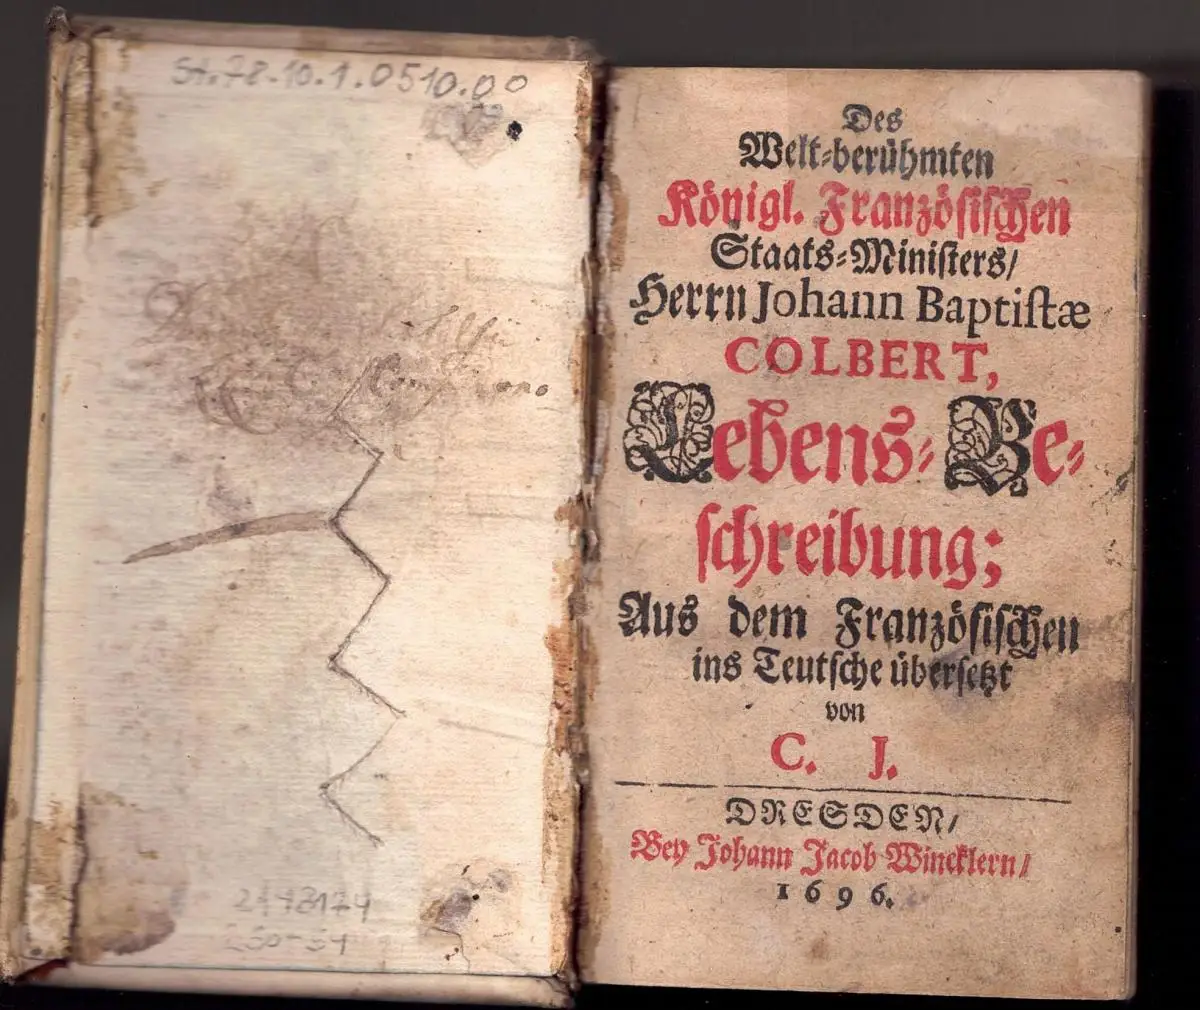 St. 78.10.1.0510.00
Des
Welt-berühmten
Königl. Französischen
Staats-Ministers/
Herrn Johann Baptistæ
COLBERT,
Lebens-Be-
schreibung;
Aus dem Französischen
ins Teutsche übersetzt
von
C. J.
DRESDEN/
Bey Johann Jacob Wincklern/
1696.